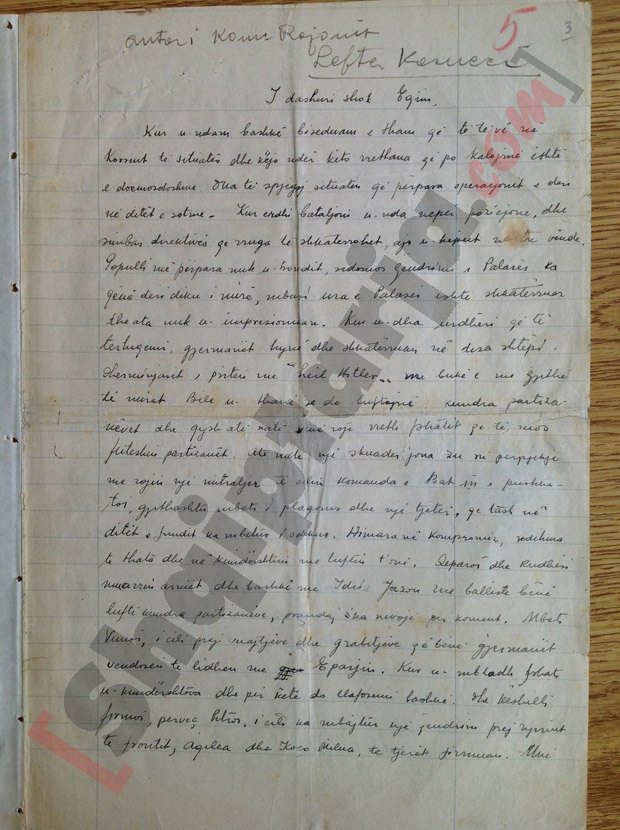 autori Kom. Rajonit
5
3
Lefter Kasneci
I dashuri shok Egim.
Kur u-ndam bashkë biseduam e tham që të të vë në
korrent të situatës dhe këjo ndër këto rrethana që po kalojmë është
e domosdoshme. Dua të spjegoj situatën që përpara operacjonit e deri
në ditët e sotme. Kur erdhi bataljoni u-nda nëpër pozicjone, dhe
simbas direktivës që rruga të shkatërrohet, ajo u-këput në tre vënde.
Populli më përpara nuk u-trondit, sidomos qëndrimi i Palasës ka
qënë deri diku i mirë, mbasi ura e Palasës është shkatërruar
the ata nuk u-impresionuan. Kur u-dha urdhëri që të
tërhiqemi, gjermanët hynë dhe shkatërruan në disa shtëpi.
Dhermianjtë i pritën me "Heil Hitler" me bukë e me gjithë
të mirat. Bile u-thanë se do luftojnë kundra partiza-
nëvet dhe gjysh atë natë rojë rreth fshatit që të mos
futeshin partizanët. Atë natë një skuadër jona zu në përpjekje
me rojën një mitraljer të cilin komanda e Bat. III e pushka-
toi, gjithashtu mbeti i plagosur dhe një tjetër, që tash në
ditët e fundit ka mbetur
Himara në kompromis,
të thatë dhe në kundërshtim me luftën t'onë. Qeparoi dhe Kudhësi
muarrën armët dhe bashkë me Idriz Jazon me ballistë bënë
luftë kundra partizanëve, prandaj s'ka nevojë për koment. Mbeti
Vunoi, i cili prej vrajtjeve dhe grabitjeve që bënë gjermanët
vendosën të lidhen me Eparjin. Kur u-mblodh fshati
u-kundërshtova dhe për këtë do llafosemi bashkë. Dhe këshilli
firmosi, përveç Petros, i cili ka mbajtur një qëndrim prej
të frontit, Aqilea dhe Koço Milua, të tjerët firmuan. Unë
[shqiptarja.com]